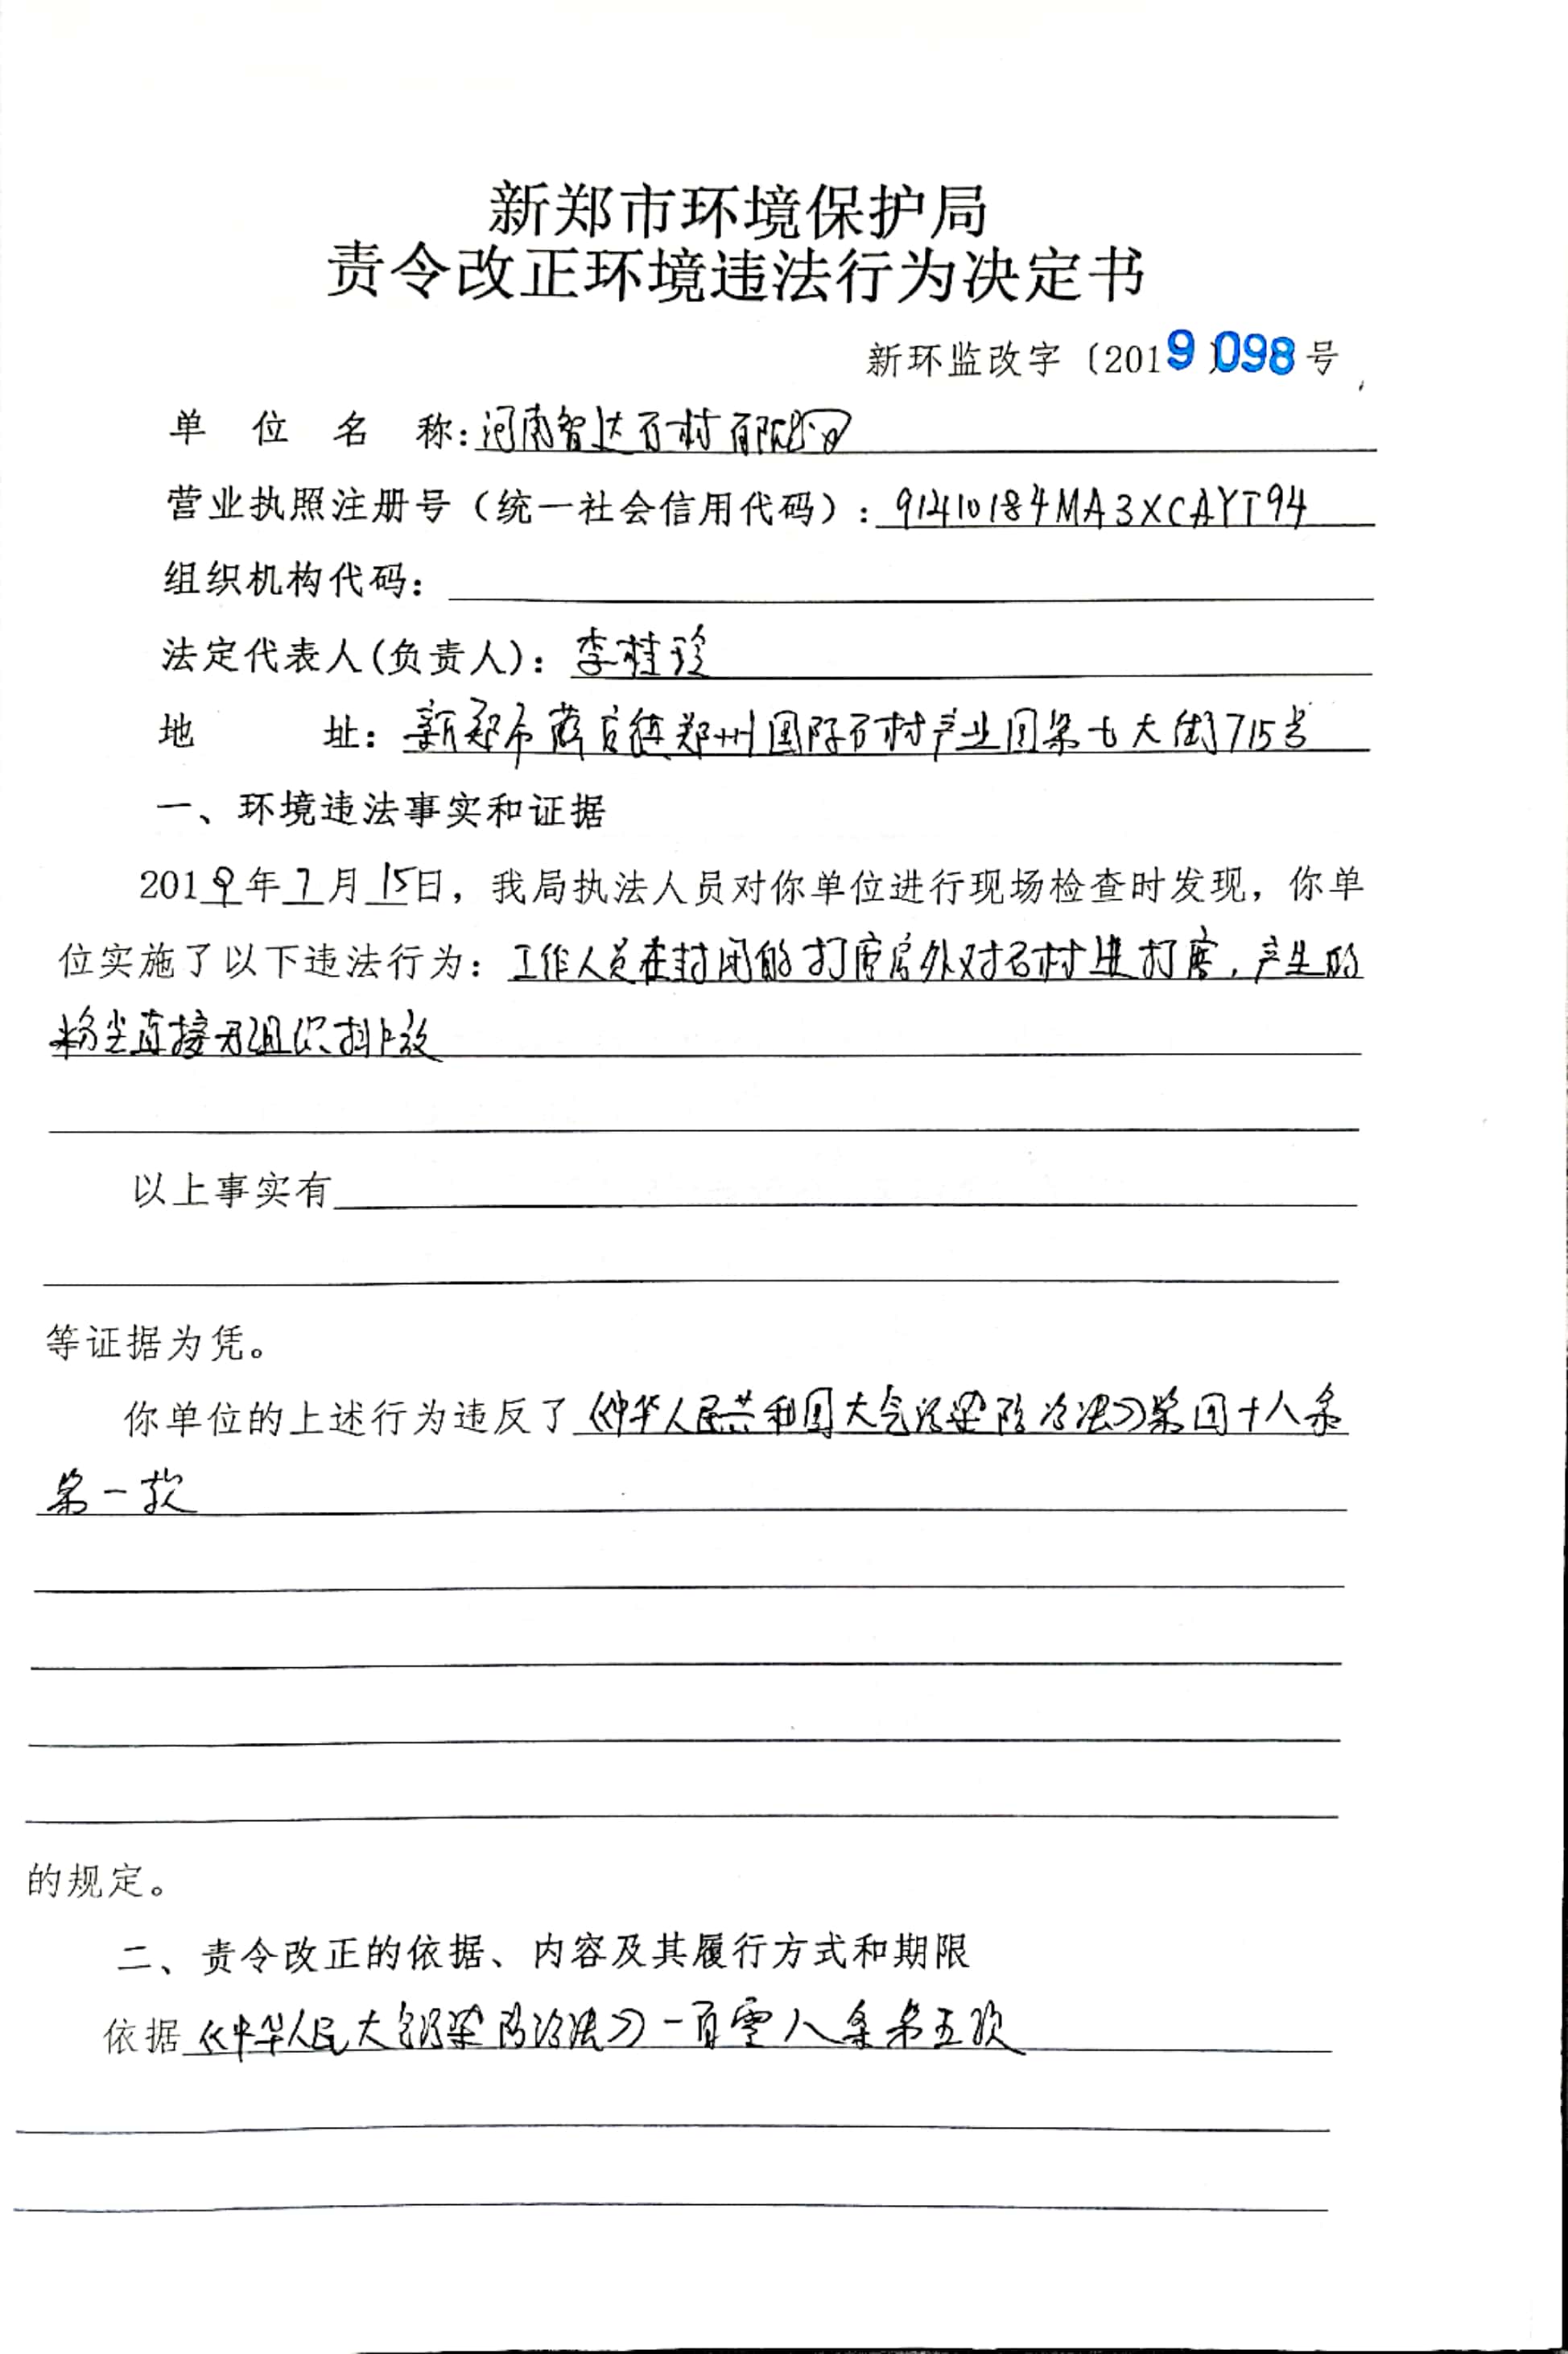 新郑市环境保护局
责令改正环境违法行为决定书
新环监改字〔2019〕098号
单位名称:河南智达石材有限公司
营业执照注册号(统一社会信用代码):91410184MA3XCAYT94
组织机构代码:
法定代表人(负责人):李桂珍
地址:新郑市薛店镇郑州国际石材产业园第七大街715号
一、环境违法事实和证据
2019年7月15日,我局执法人员对你单位进行现场检查时发现,你单
位实施了以下违法行为:工作人员在封闭的打磨房外对石材进打磨,产生的
粉尘直接无组织排放
以上事实有
等证据为凭。
你单位的上述行为违反了《中华人民共和国大气污染防治法》第四十八条
第一款
的规定。
二、责令改正的依据、内容及其履行方式和期限
依据《中华人民大气污染防治法》一百零八条第五项